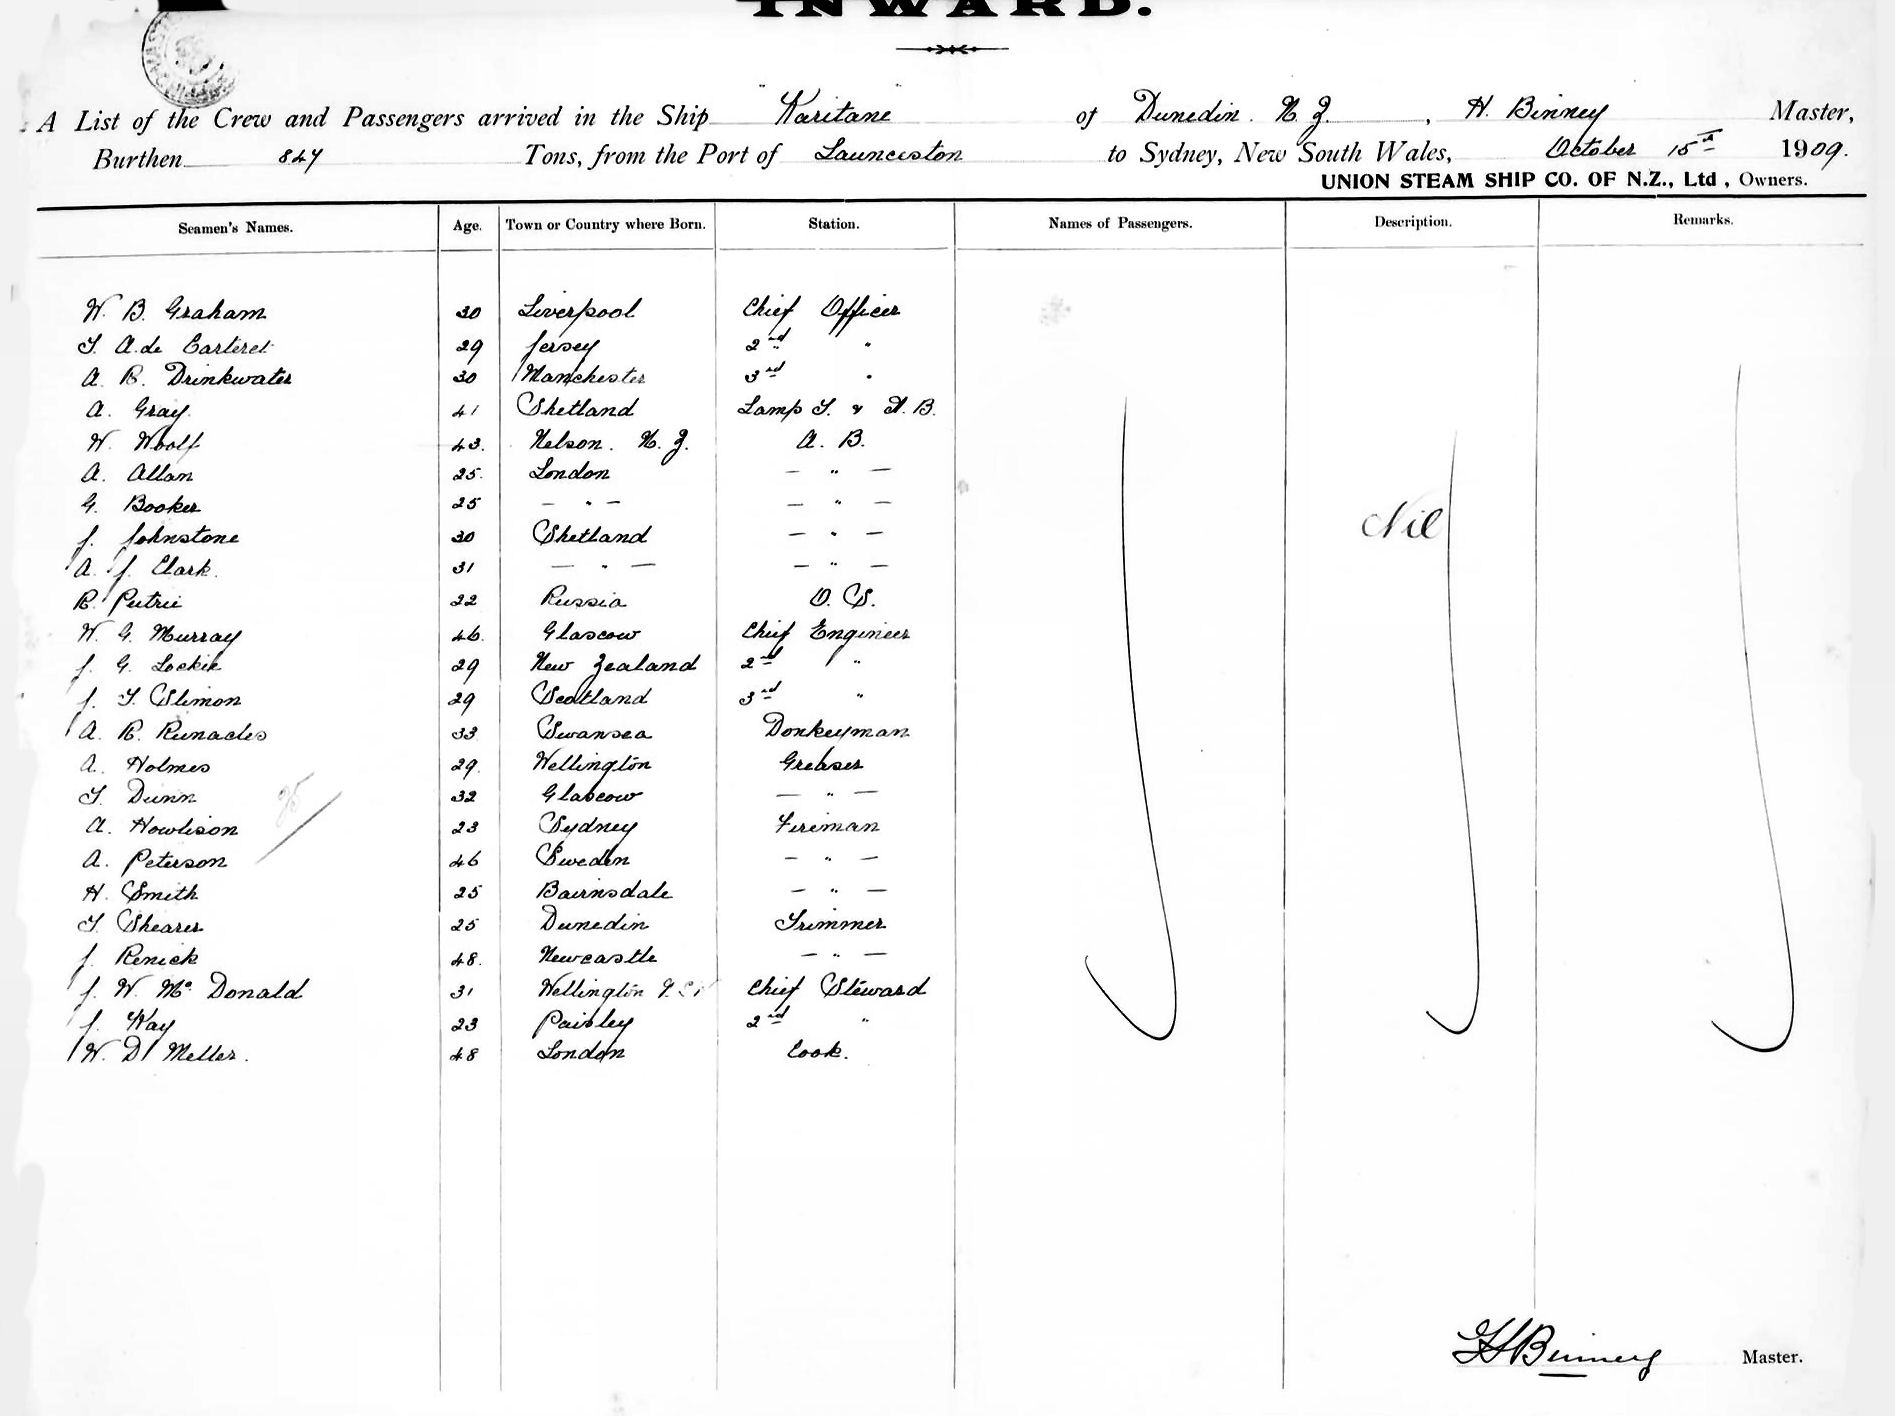 INWARD.
A List of the Crew and Passengers arrived in the Ship "Karitane" of Dunedin. N. Z. , H. Binney Master,
Burthen 847 Tons, from the Port of Launceston to Sydney, New South Wales, October 15th 1909.
UNION STEAM SHIP CO. OF N.Z., Ltd , Owners.
Seamen's Names. Age. Town or Country where Born. Station. Names of Passengers. Description. Remarks.
W. B. Graham 30 Liverpool Chief Officer
T. A. de Carteret 29 Jersey 2nd "
A. R. Drinkwater 30 Manchester 3rd "
A. Gray. 41 Shetland Lamp T. & A. B.
W. Woolf 43. Nelson. N. Z. A. B.
A. Allan 25. London — " —
G. Booker 25 — " — — " —
J. Johnstone 30 Shetland — " —
Nil
A. J. Clark. 31 — " — — " —
R. Petrie 22 Russia O. S.
W. G. Murray 46. Glascow Chief Engineer
J. G. Lockie 29 New Zealand 2nd "
J. T. Slimon 29 Scotland 3rd "
A. R. Runacles 33 Swansea Donkeyman
A. Holmes 29. Wellington Greaser
T. Dunn 32 Glascow — " —
A. Howlison 23 Sydney Fireman
A. Peterson 46 Sweden — " —
H. Smith 25 Bairnsdale — " —
T. Shearer 25 Dunedin Trimmer
J. Renick 48. Newcastle — " —
J. W. McDonald 31 Wellington Chief Steward
J. Hay 23 Paisley 2nd "
W. D. Meller. 48 London Cook.
H Binney Master.